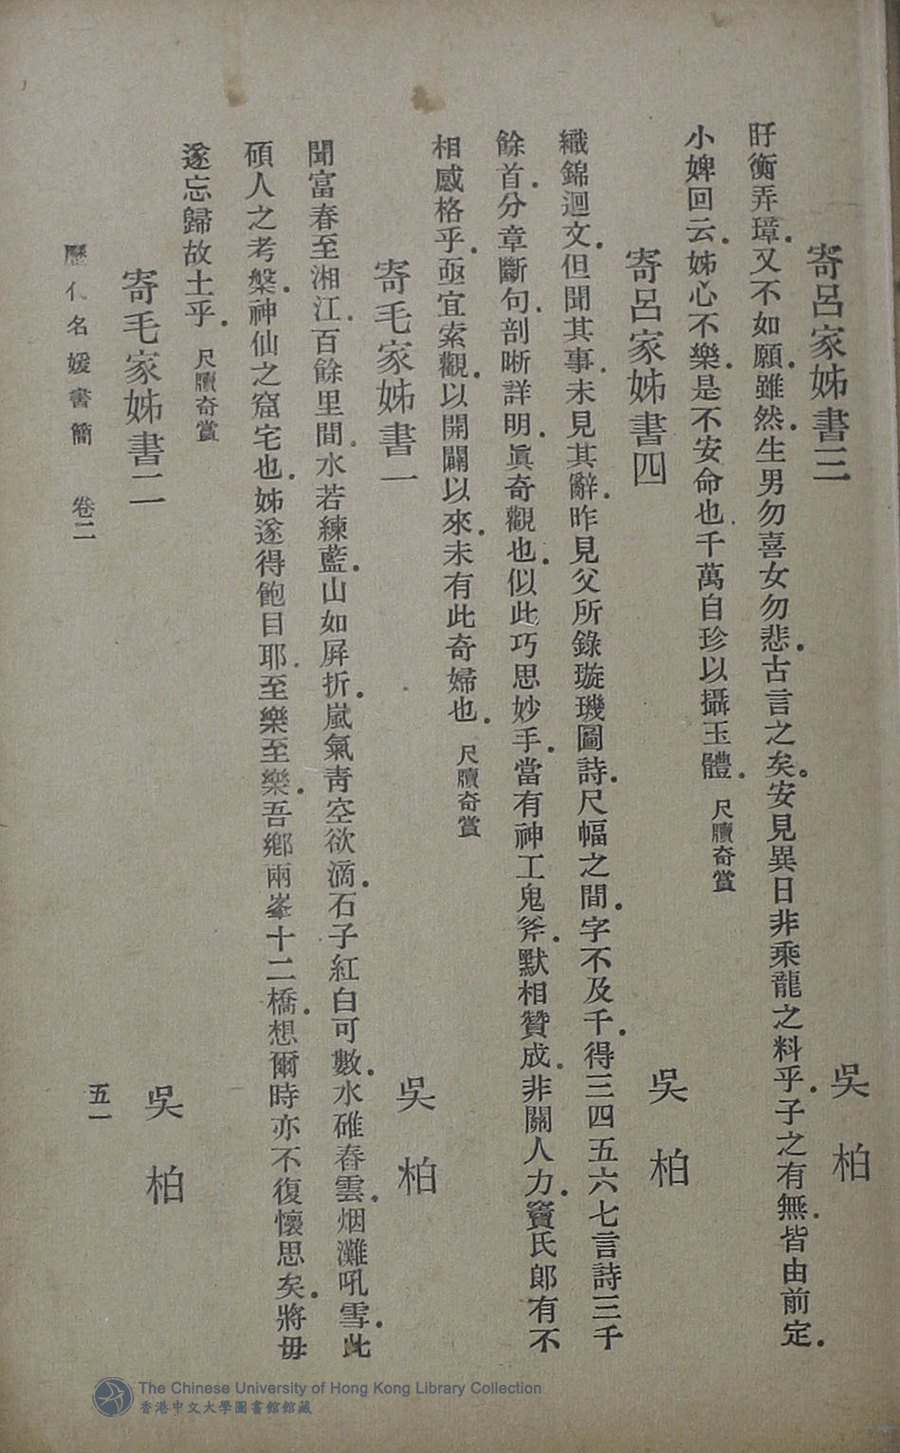 寄呂家姊書三　吳　柏
盱衡弄璋.又不如願.雖然.生男勿喜女勿悲.古言之矣。安見異日非乘龍之料乎.子之有無.皆由前定.
小婢回云.姊心不樂.是不安命也.千萬自珍以攝玉體.尺牘奇賞
寄呂家姊書四　吳　柏
織錦迴文.但聞其事.未見其辭.昨見父所錄璇璣圖詩.尺幅之間.字不及千.得三四五六七言詩三千
餘首.分章斷句.剖晰詳明.眞奇觀也.似此巧思妙手.當有神工鬼斧.默相贊成.非關人力.竇氏郎有不
相感格乎.亟宜索觀.以開闢以來.未有此奇婦也.尺牘奇賞
寄毛家姊書一　吳　柏
聞富春至湘江.百餘里間.水若練藍.山如屛折.嵐氣靑空欲滴.石子紅白可數.水碓舂雲.烟灘吼雪.此
碩人之考槃.神仙之窟宅也.姊遂得飽目耶.至樂至樂.吾鄕兩峯十二橋.想爾時亦不復懷思矣.將毋
遂忘歸故土乎.尺牘奇賞
寄毛家姊書二　吳　柏
歷代名媛書簡　卷二　五一
The Chinese University of Hong Kong Library Collection
香港中文大學圖書館館藏